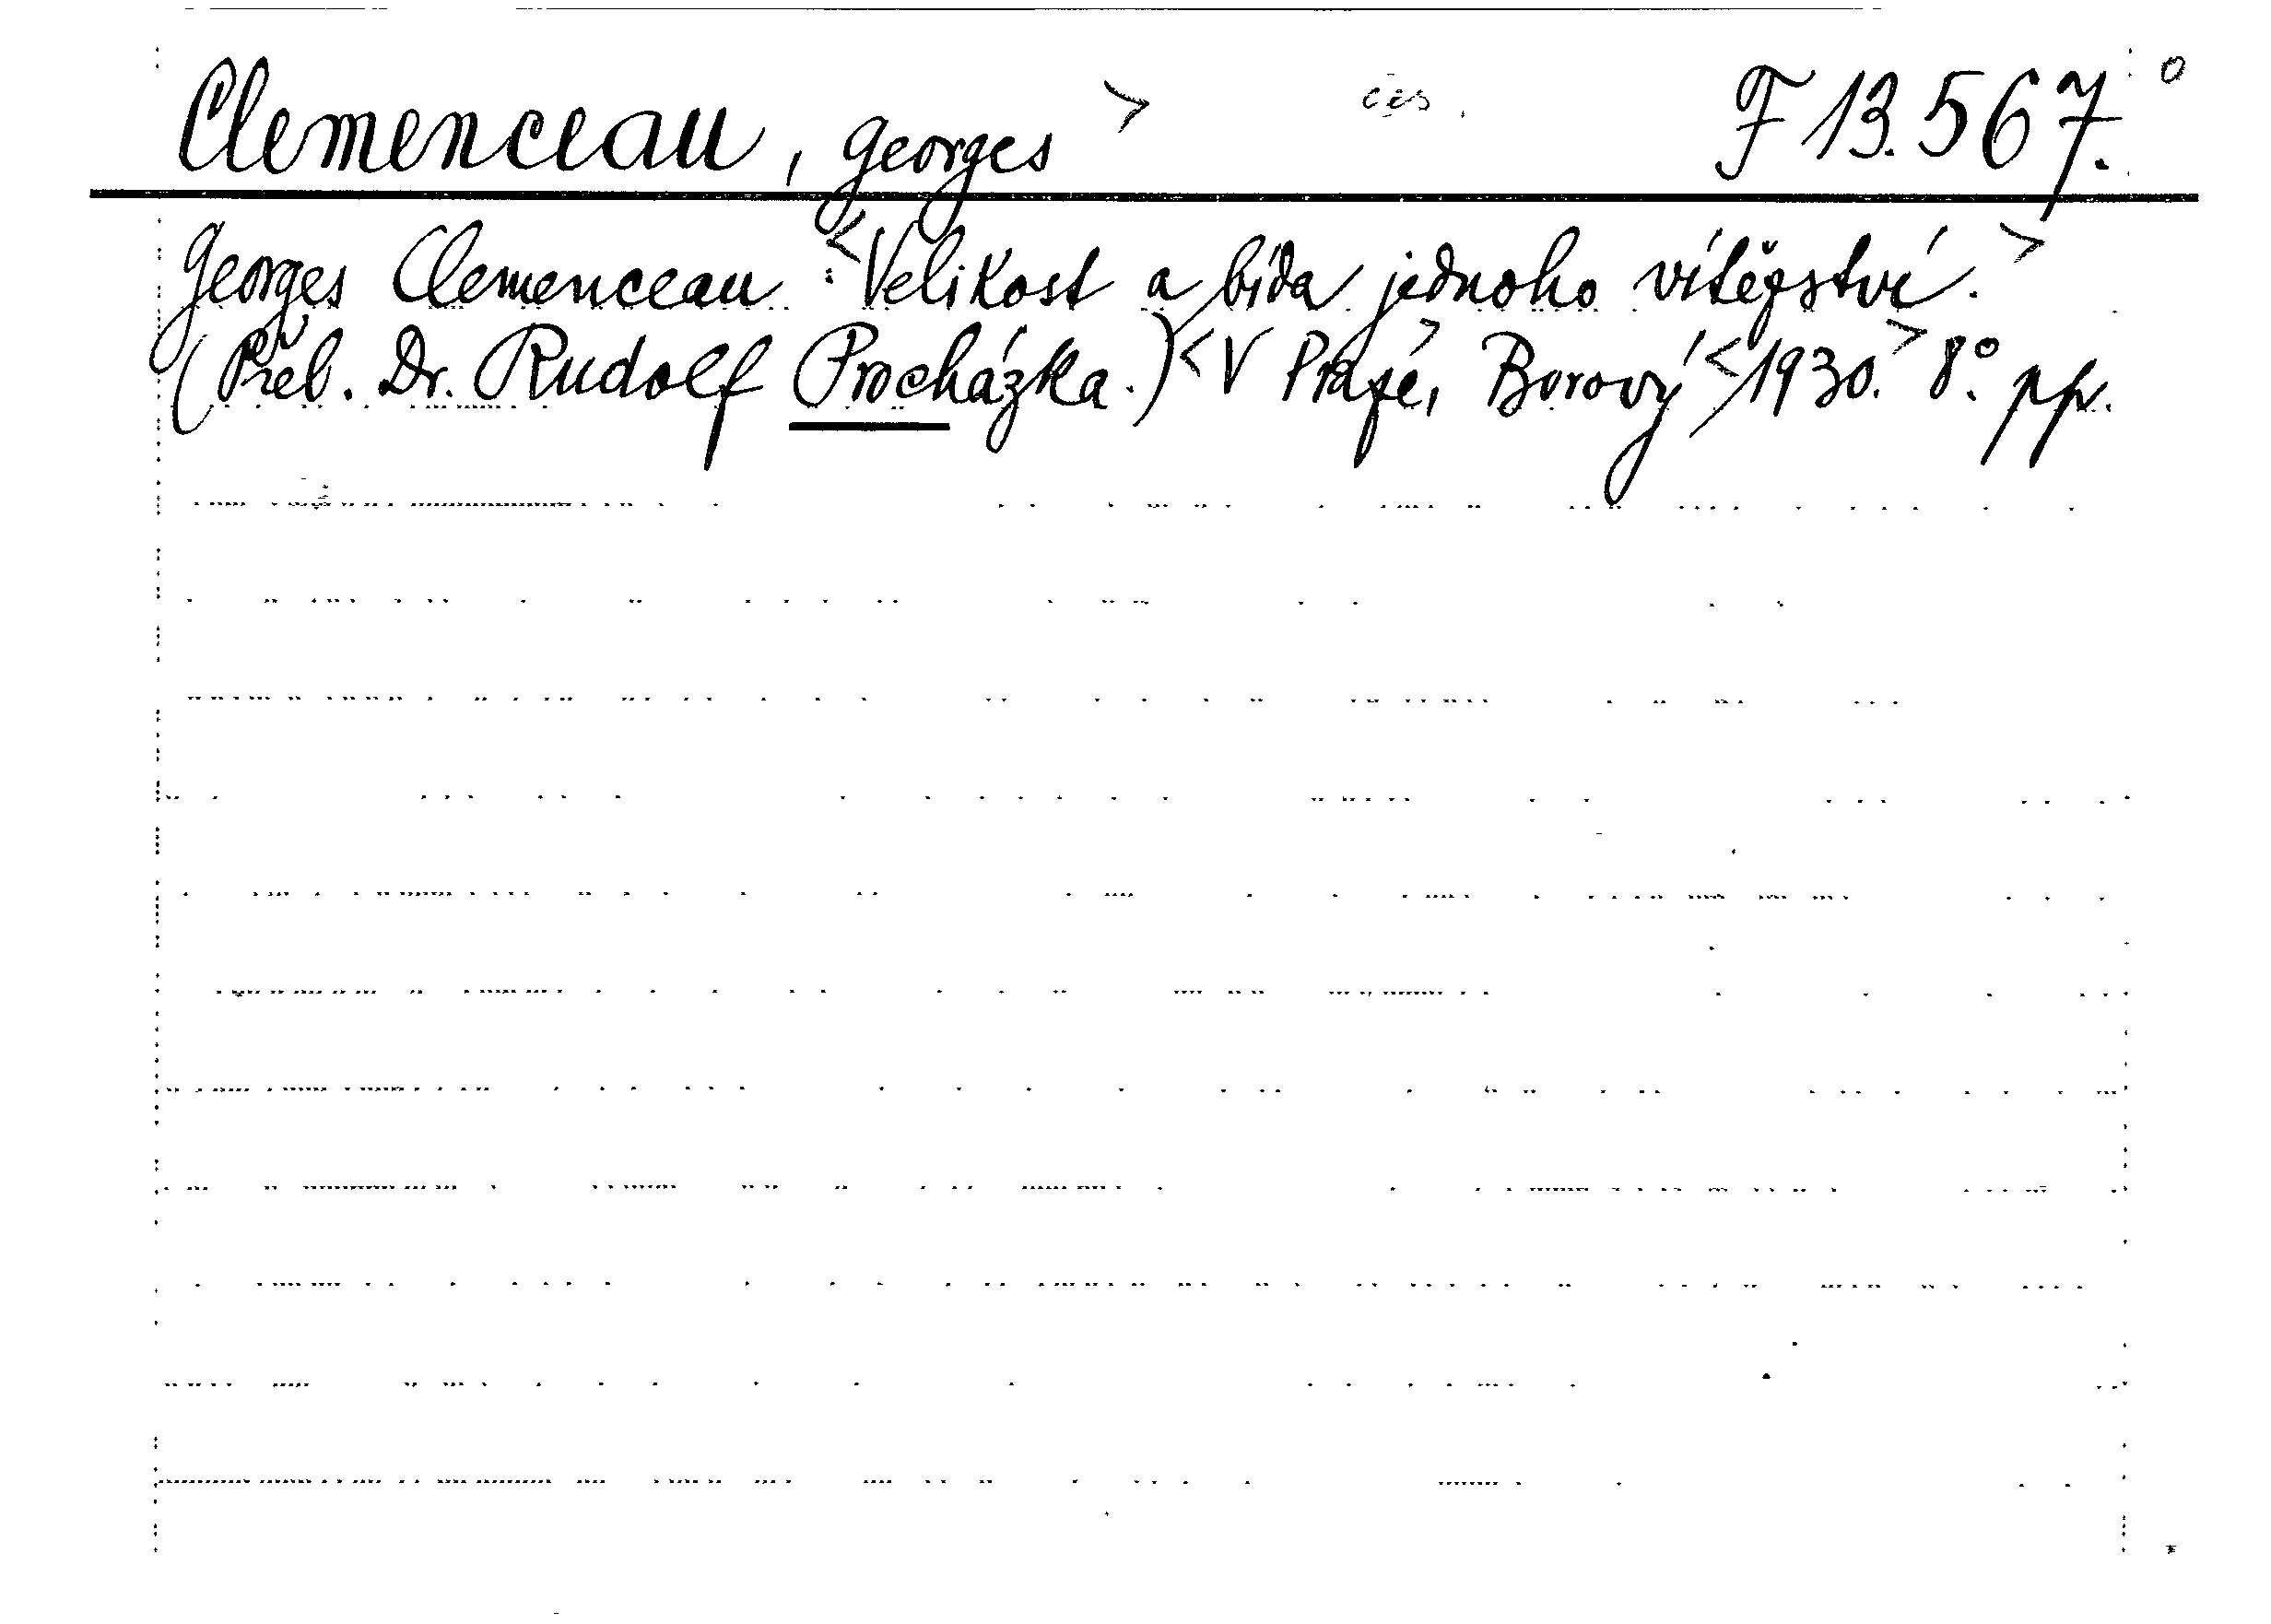 Clemenceau, Georges > čes. F 13.567. o
Georges Clemenceau: <Velikost a bída jednoho vítězství.>
(Přel. Dr. Rudolf Procházka.) <V Praze,> Borový <1930.> 8° pp.